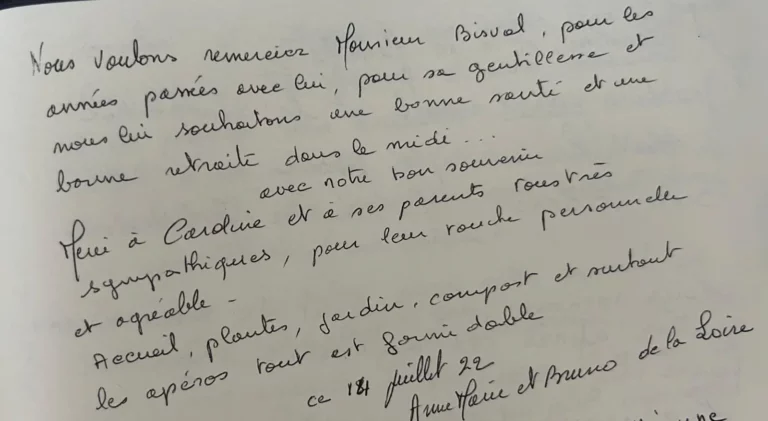 Nous voulons remercier Monsieur Bisval, pour les
années passées avec lui, pour sa gentillesse et
nous lui souhaitons une bonne santé et une
bonne retraite dans le midi...
avec notre bon souvenir
Merci à Caroline et à ses parents tous très
sympathiques, pour leur touche personnelle
et agréable -
Accueil, plantes, jardin, compost et surtout
les apéros tout est formidable
ce 14 juillet 22
Anne Marie et Bruno de la Loire